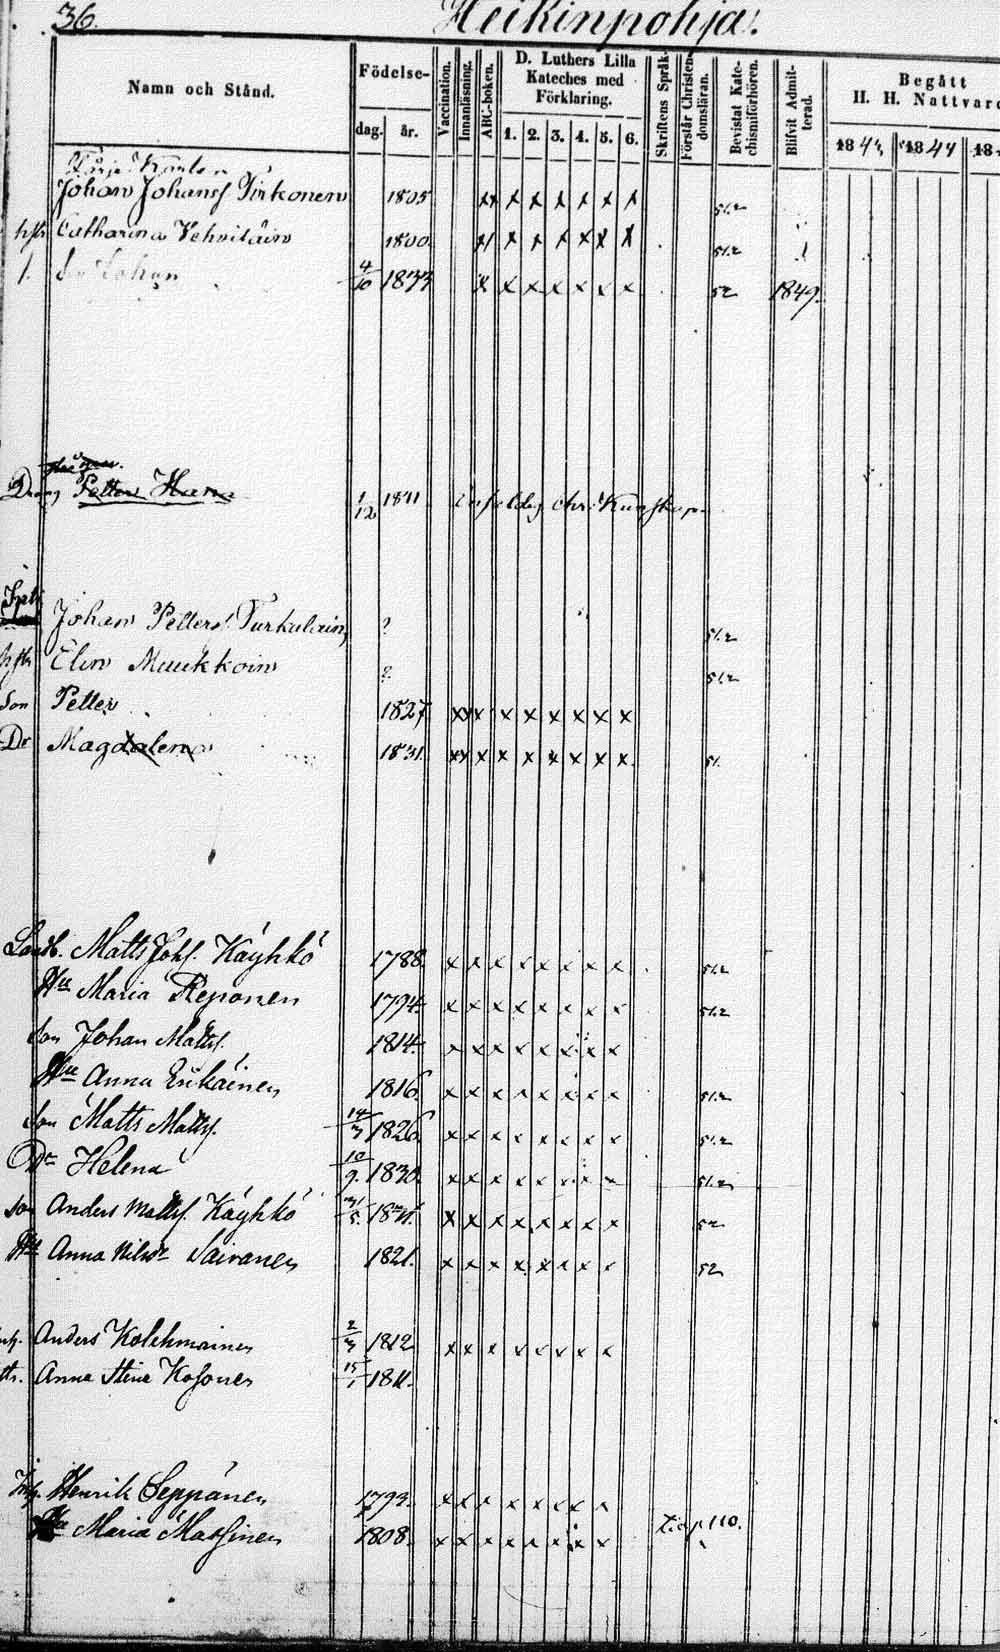 36.
Heikinpohja.
Namn och Stånd.
Födelse-
dag. år.
Vaccination.
Innanläsning.
ABC-boken.
D. Luthers Lilla
Kateches med
Förklaring.
1. 2. 3. 4. 5. 6.
Skriftens Språk-
Förstår Christen-
domsläran.
Bevistat Kate-
chismiförhören.
Blifvit Admit-
terad.
Begått
H. H. Nattvard
1843 1844 18
Johan Johanss Pirkonen 1805 x x x x x x x x 51.2
Catharina 1800 x x x x x x x 51.2
Johan 4/10 1833 x x x x x x x 52 1849.
Dräng Petter 1/12 1811
Johan Petters. Turkulain ? 51.2
Elin Muukkoin ? 51.2
Son Petter 1827 x x x x x x x x x
Dr Magdalena 1831. x x x x x x x x x 51.
Landb. Matts Johs. Käyhkö 1788. x x x x x x x x 51.2
Hu Maria Reponen 1794. x x x x x x x x 51.2
Son Johan Matts. 1814. x x x x x x x x
Hu Anna 1816. x x x x x x x x 51.2
Son Matts Matts. 14/3 1826. x x x x x x x x 51.2
Dr Helena 10/9. 1830. x x x x x x x x 51.2
Son Anders Matts. Käyhkö 31/5. x x x x x x x x 52
Hu Anna Nilsdr Saivanen 1821. x x x x x x x x 52
Anders Kolehmainen 2/3 1812 x x x x x x x x
Anna Stina Kosonen 15/1 1811.
Inh. Henrik Seppänen 1793. x x x x x x x x
Hu Maria Massinen 1808. x x x x x x x x p 110.